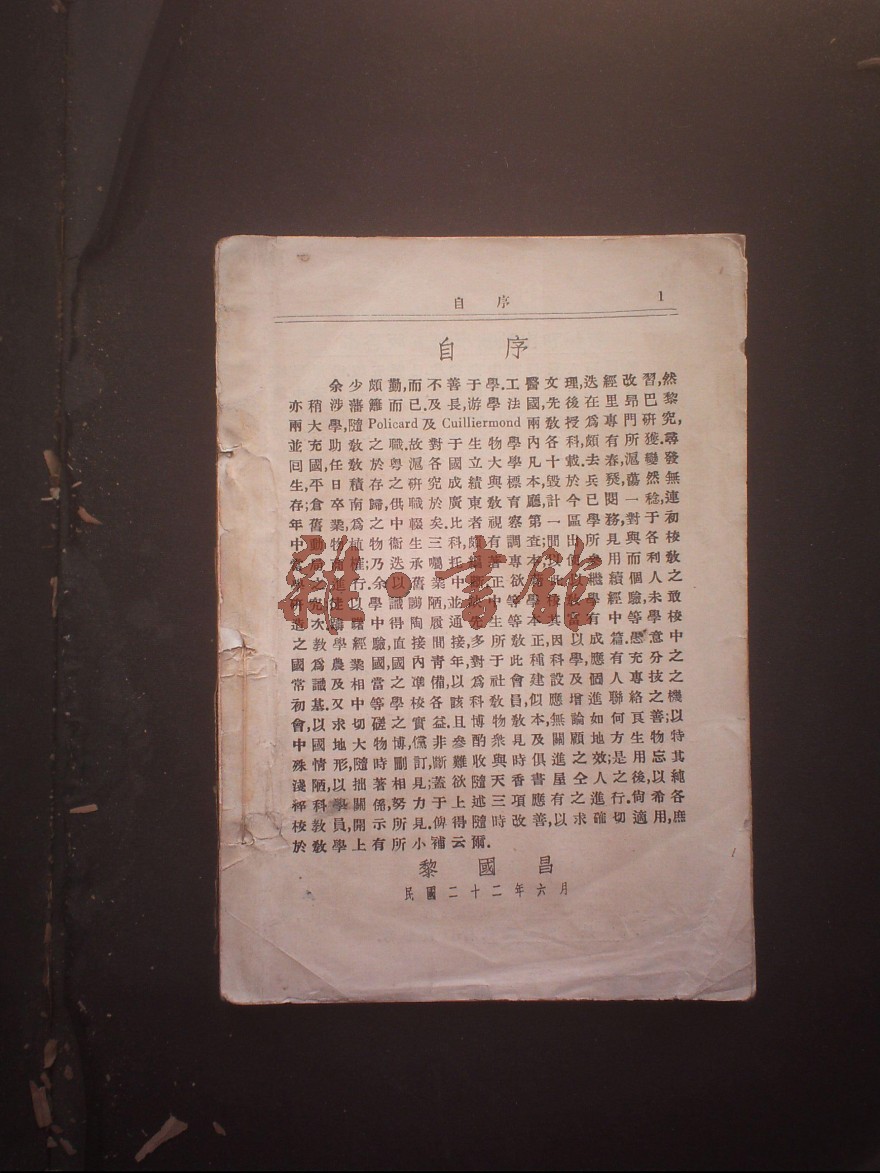 自序 1
自序
余少頗勤,而不善于學.工醫文理,迭經改習,然
亦稍涉藩籬而已.及長,游學法國,先後在里昂巴黎
兩大學,隨Policard及Cuilliermond兩教授爲專門研究,
並充助教之職.故對于生物學內各科,頗有所獲.尋
回國,任教於粵滬各國立大學凡十載.去春,滬變發
生,平日積存之研究成績與標本,毀於兵燹,蕩然無
存;倉卒南歸,供職於廣東教育廳,計今已閱一稔,連
年舊業,爲之中輟矣.比者視察第一區學務,對于初
中動物植物衞生三科,頗有調查;間出所見與各校
當局商榷;乃迭承囑托 著專本,
學之進行.余以舊業中 正欲 繼續個人之
研究,徒以學識譾陋,並 中等學 經驗,未敢
造次.疇曩中得陶履通先生等本其 有中等學校
之教學經驗,直接間接,多所教正,因以成篇.愚意中
國爲農業國,國內青年,對于此種科學,應有充分之
常識及相當之準備,以爲社會建設及個人專技之
初基.又中等學校各該科教員,似應增進聯絡之機
會,以求切磋之實益.且博物教本,無論如何良善;以
中國地大物博,儻非參酌衆見及關顧地方生物特
殊情形,隨時刪訂,斷難收與時俱進之效;是用忘其
淺陋,以拙著相見;蓋欲隨天香書屋仝人之後,以純
粹科學關係,努力于上述三項應有之進行.尙希各
校教員,開示所見.俾得隨時改善,以求確切適用,庶
於教學上有所小補云爾.
黎國昌
民國二十二年六月
雜·書館